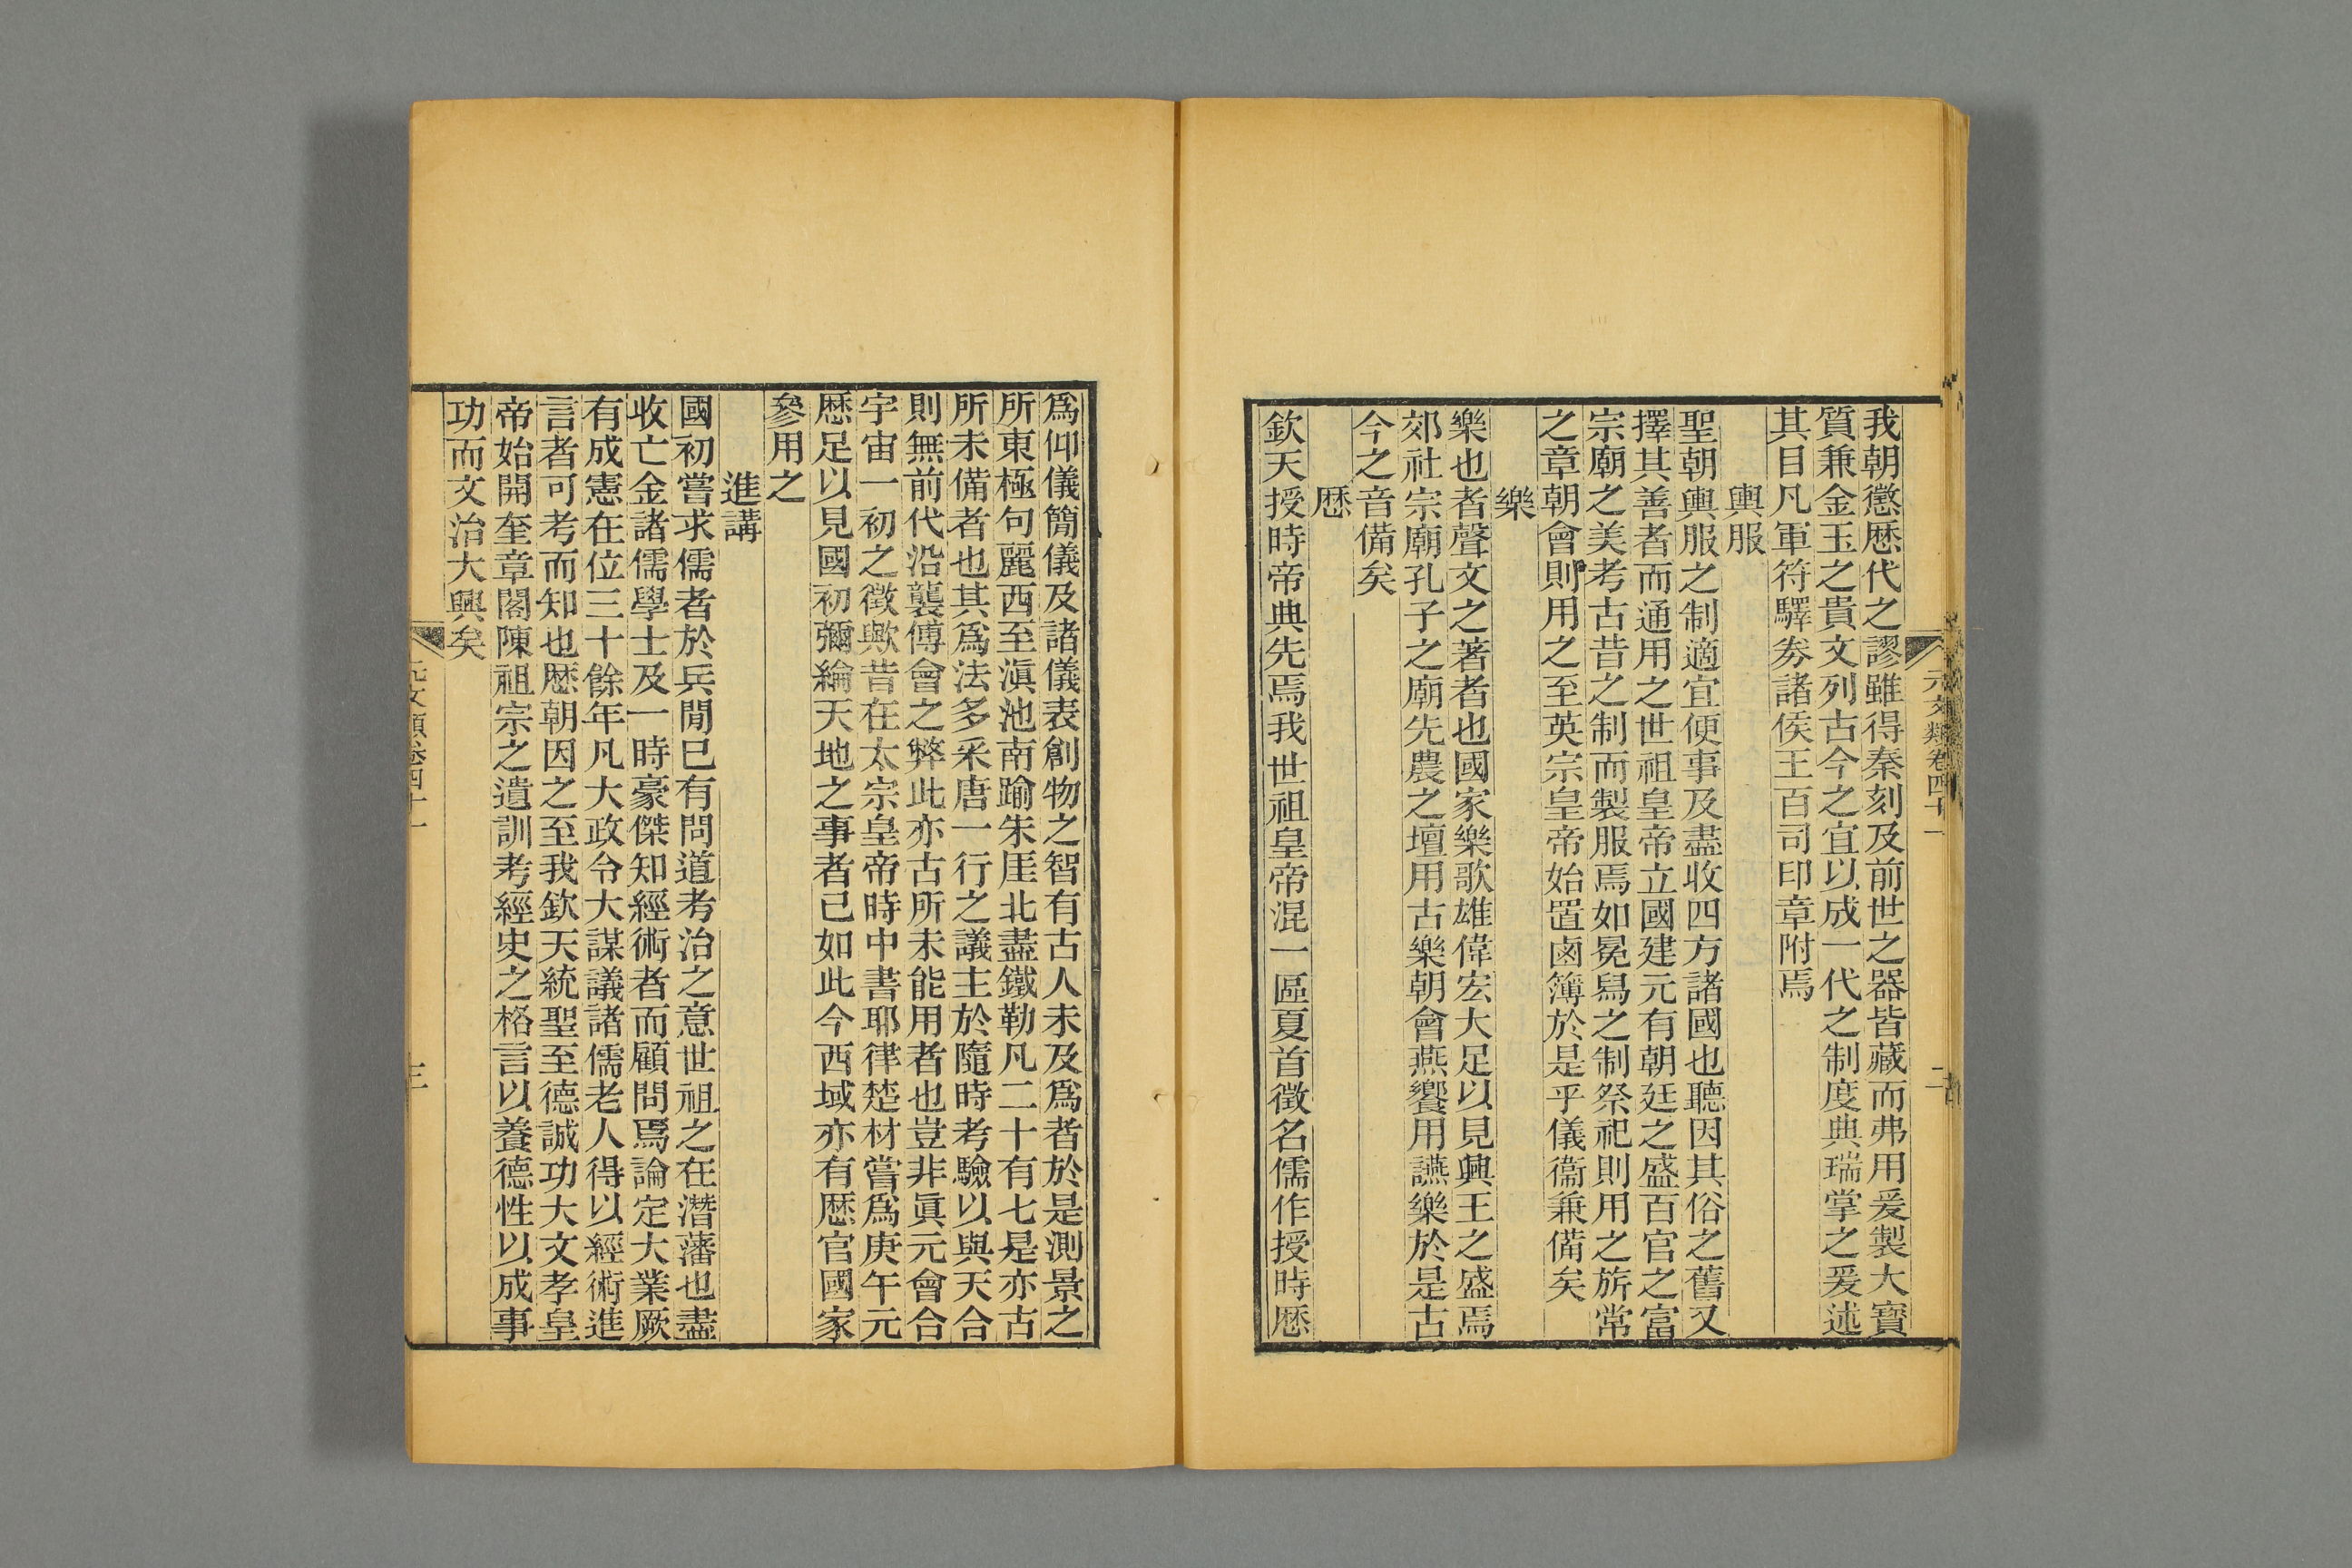 元文類卷四十一
二
我朝懲歴代之謬雖得秦刻及前世之器皆藏而弗用爰製大寶
質兼金玉之貴文列古今之宜以成一代之制度典瑞掌之爰述
其目凡軍符驛劵諸侯王百司印章附焉
輿服
聖朝輿服之制適宜便事及盡收四方諸國也聽因其俗之舊又
擇其善者而通用之世祖皇帝立國建元有朝廷之盛百官之富
宗廟之美考古昔之制而製服焉如冕舄之制祭祀則用之旂常
之章朝會則用之至英宗皇帝始置鹵簿於是乎儀衞兼備矣
樂
樂也者聲文之著者也國家樂歌雄偉宏大足以見興王之盛焉
郊社宗廟孔子之廟先農之壇用古樂朝會燕饗用讌樂於是古
今之音備矣
歴
欽天授時帝典先焉我世祖皇帝混一區夏首徵名儒作授時歴
爲仰儀簡儀及諸儀表創物之智有古人未及爲者於是測景之
所東極句麗西至滇池南踰朱厓北盡鐵勒凡二十有七是亦古
所未備者也其爲法多采唐一行之議主於隨時考驗以與天合
則無前代沿襲傅會之弊此亦古所未能用者也豈非眞元會合
宇宙一初之徵歟昔在太宗皇帝時中書耶律楚材嘗爲庚午元
歴足以見國初彌綸天地之事者已如此今西域亦有歴官國家
參用之
進講
國初嘗求儒者於兵閒已有問道考治之意世祖之在潛藩也盡
收亡金諸儒學士及一時豪傑知經術者而顧問焉論定大業厥
有成憲在位三十餘年凡大政令大謀議諸儒老人得以經術進
言者可考而知也歴朝因之至我欽天統聖至德誠功大文孝皇
帝始開奎章閣陳祖宗之遺訓考經史之格言以養德性以成事
功而文治大興矣
元文類卷四十一
三